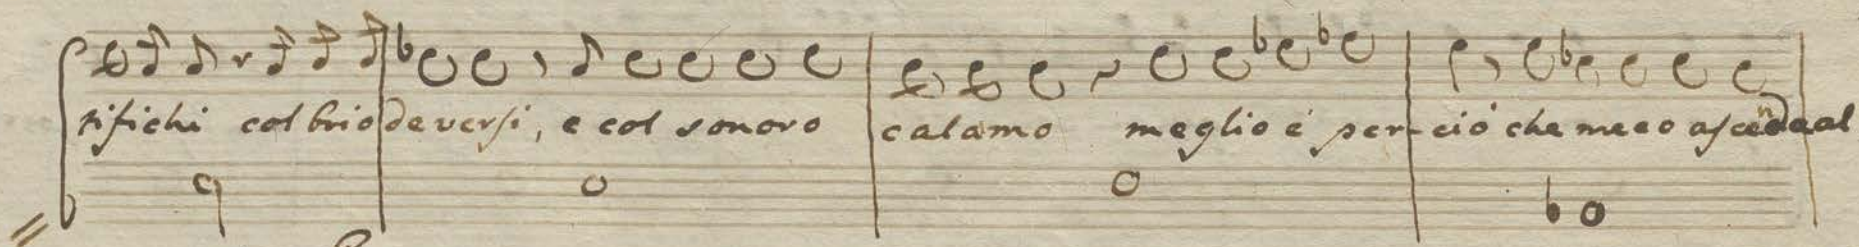 sifichi col brio de versi, e col sonoro calamo meglio è per-ciò che meco ascende al